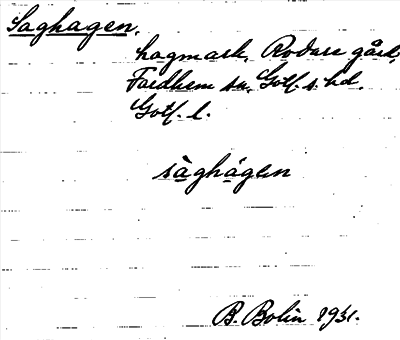 Saghagen.
hagmark, Rodarve gård,
Fardhem sn, Gotl. s. hd.
Gotl. l.
sàghágen
B. Bolin 1931.